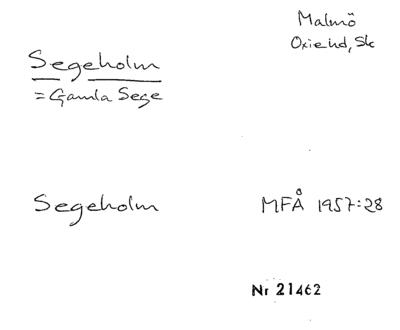 Malmö
Oxie hd, Sk
Segeholm
= Gamla Sege
Segeholm
MFÅ 1957:28
Nr 21462